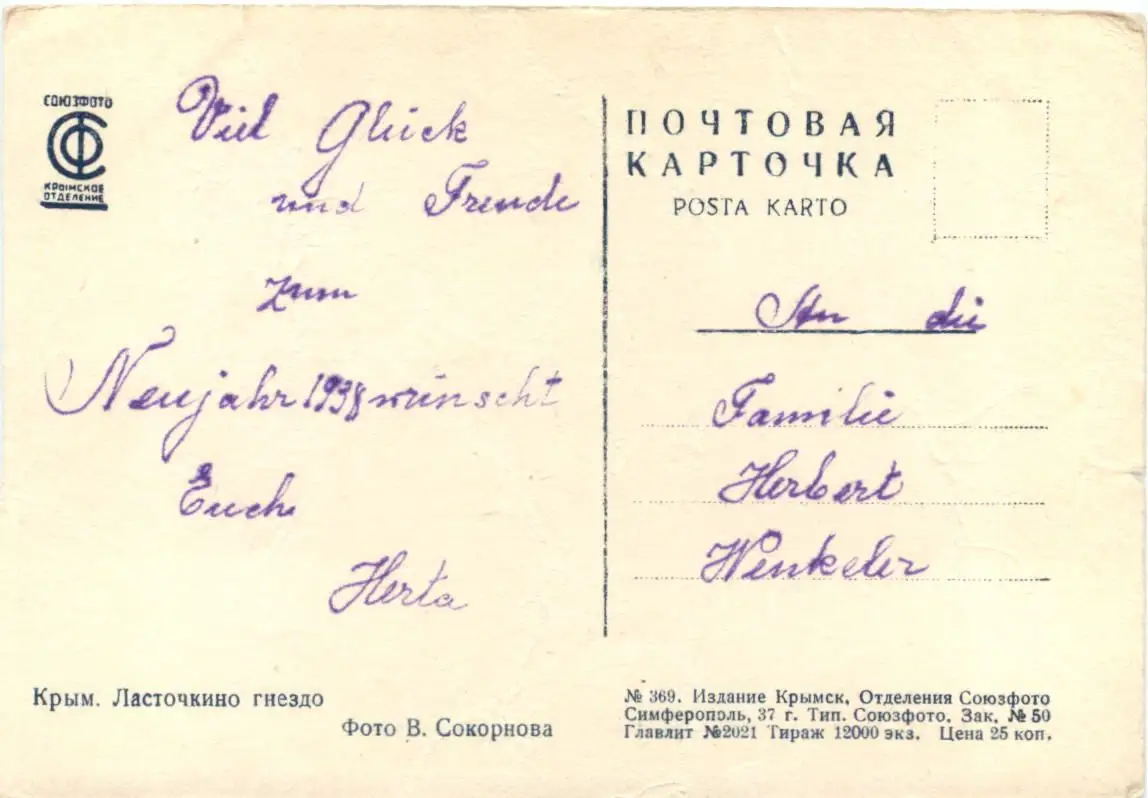 СОЮЗФОТО
СФ
КРЫМСКОЕ
ОТДЕЛЕНИЕ
Viel Glück
und Freude
zum
Neujahr 1938 wünscht
Euch
Herta
Крым. Ласточкино гнездо
Фото В. Сокорнова
ПОЧТОВАЯ
КАРТОЧКА
POSTA KARTO
An die
Familie
Herbert
Winkeler
№ 369. Издание Крымск. Отделения Союзфото
Симферополь, 37 г. Тип. Союзфото. Зак. № 50
Главлит №2021 Тираж 12000 экз. Цена 25 коп.